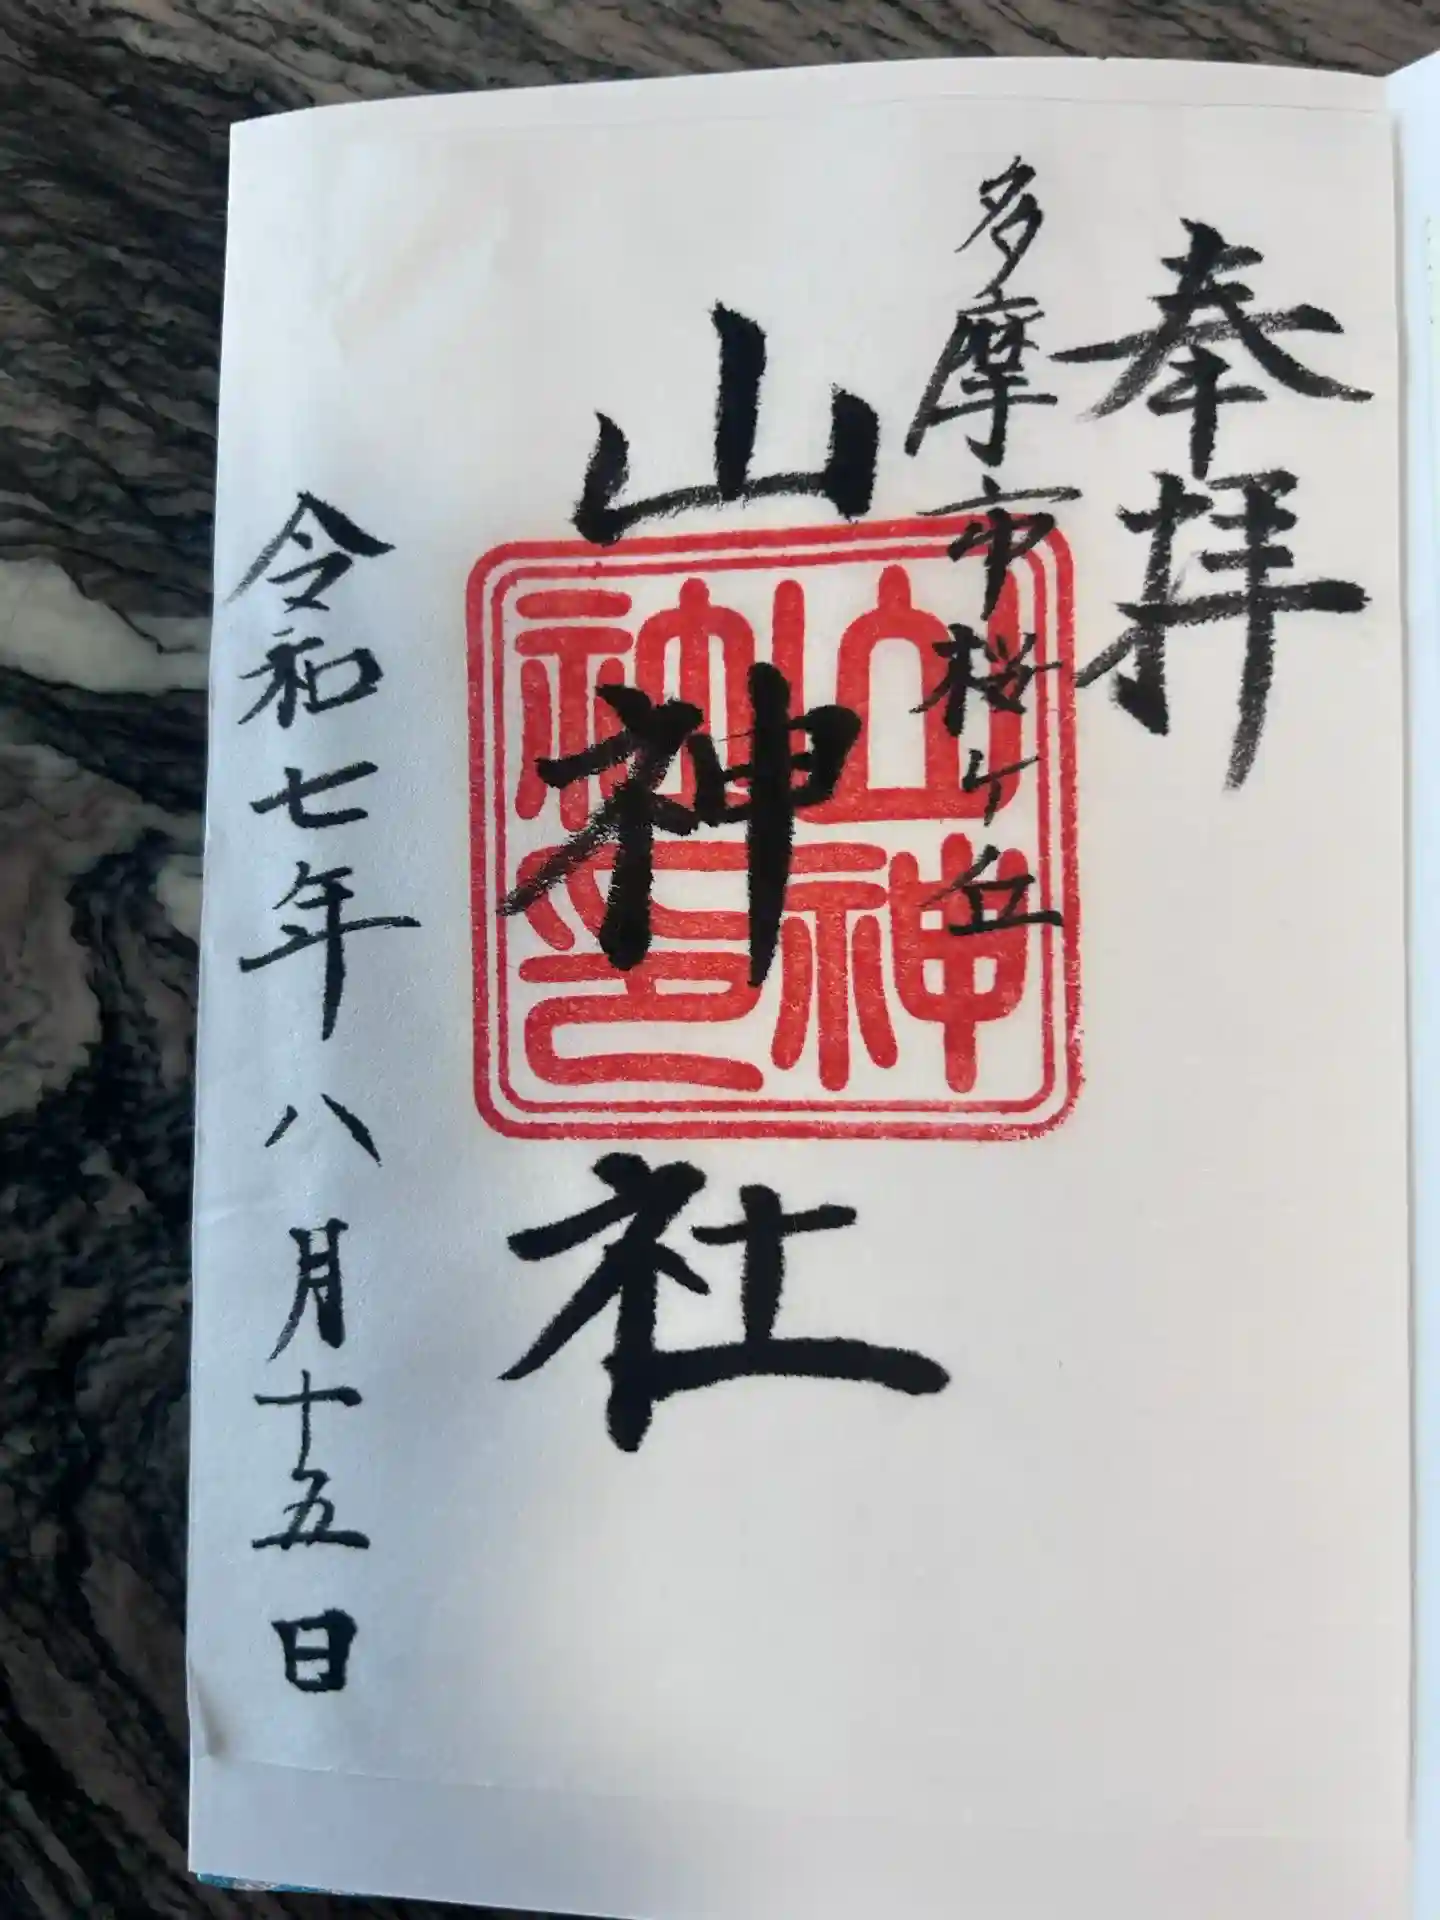 奉拝
多摩市桜ヶ丘
山神社
山神社印
令和七年八月十五日